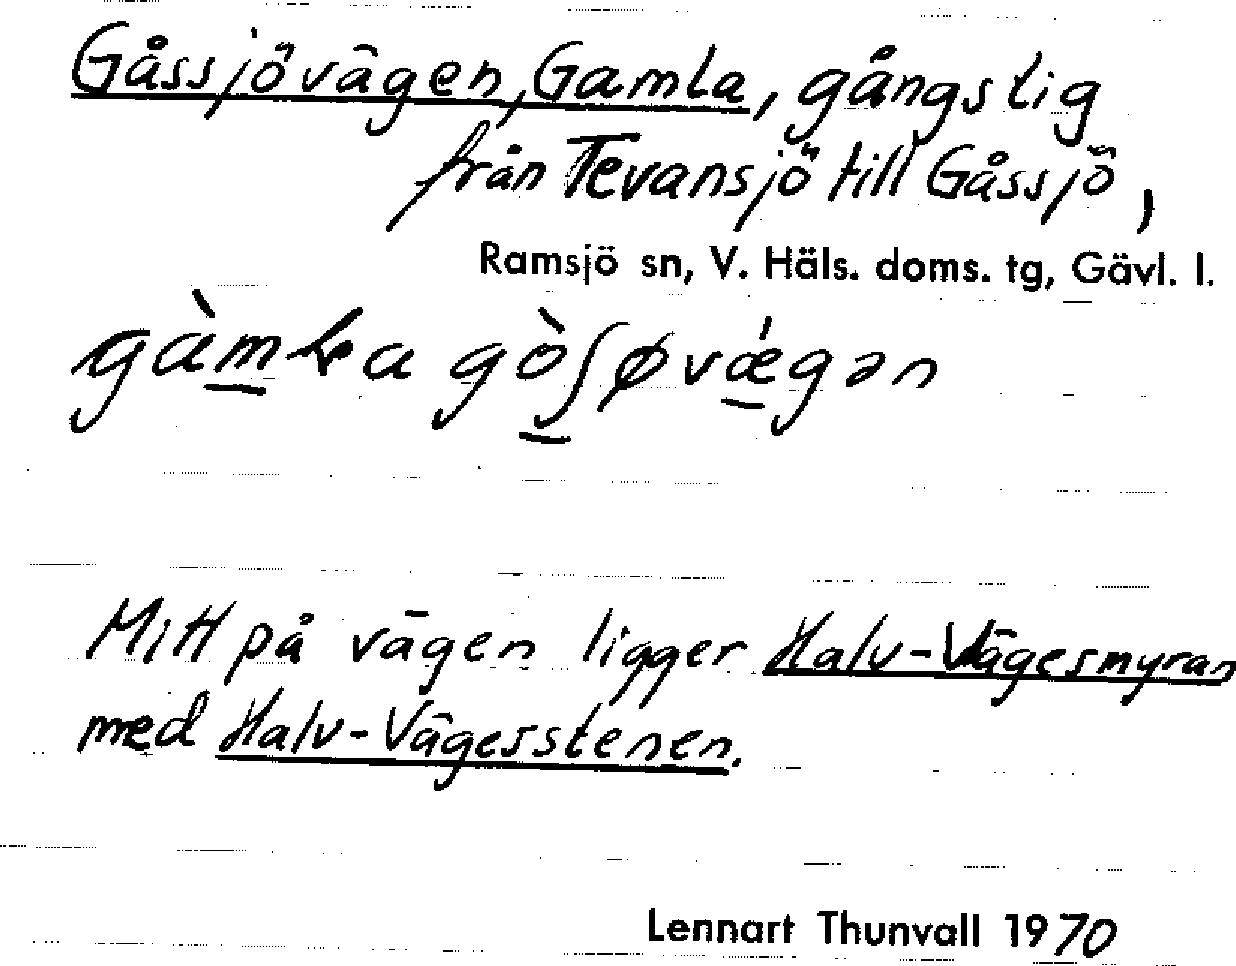 Gåssjövägen, Gamla, gångstig
från Tevansjö till Gåssjö,
Ramsjö sn, V. Häls. doms. tg, Gävl. l.
gàmla gòʃøvǽgən
Mitt på vägen ligger Halv-Vägesmyran
med Halv-Vägesstenen.
Lennart Thunvall 1970